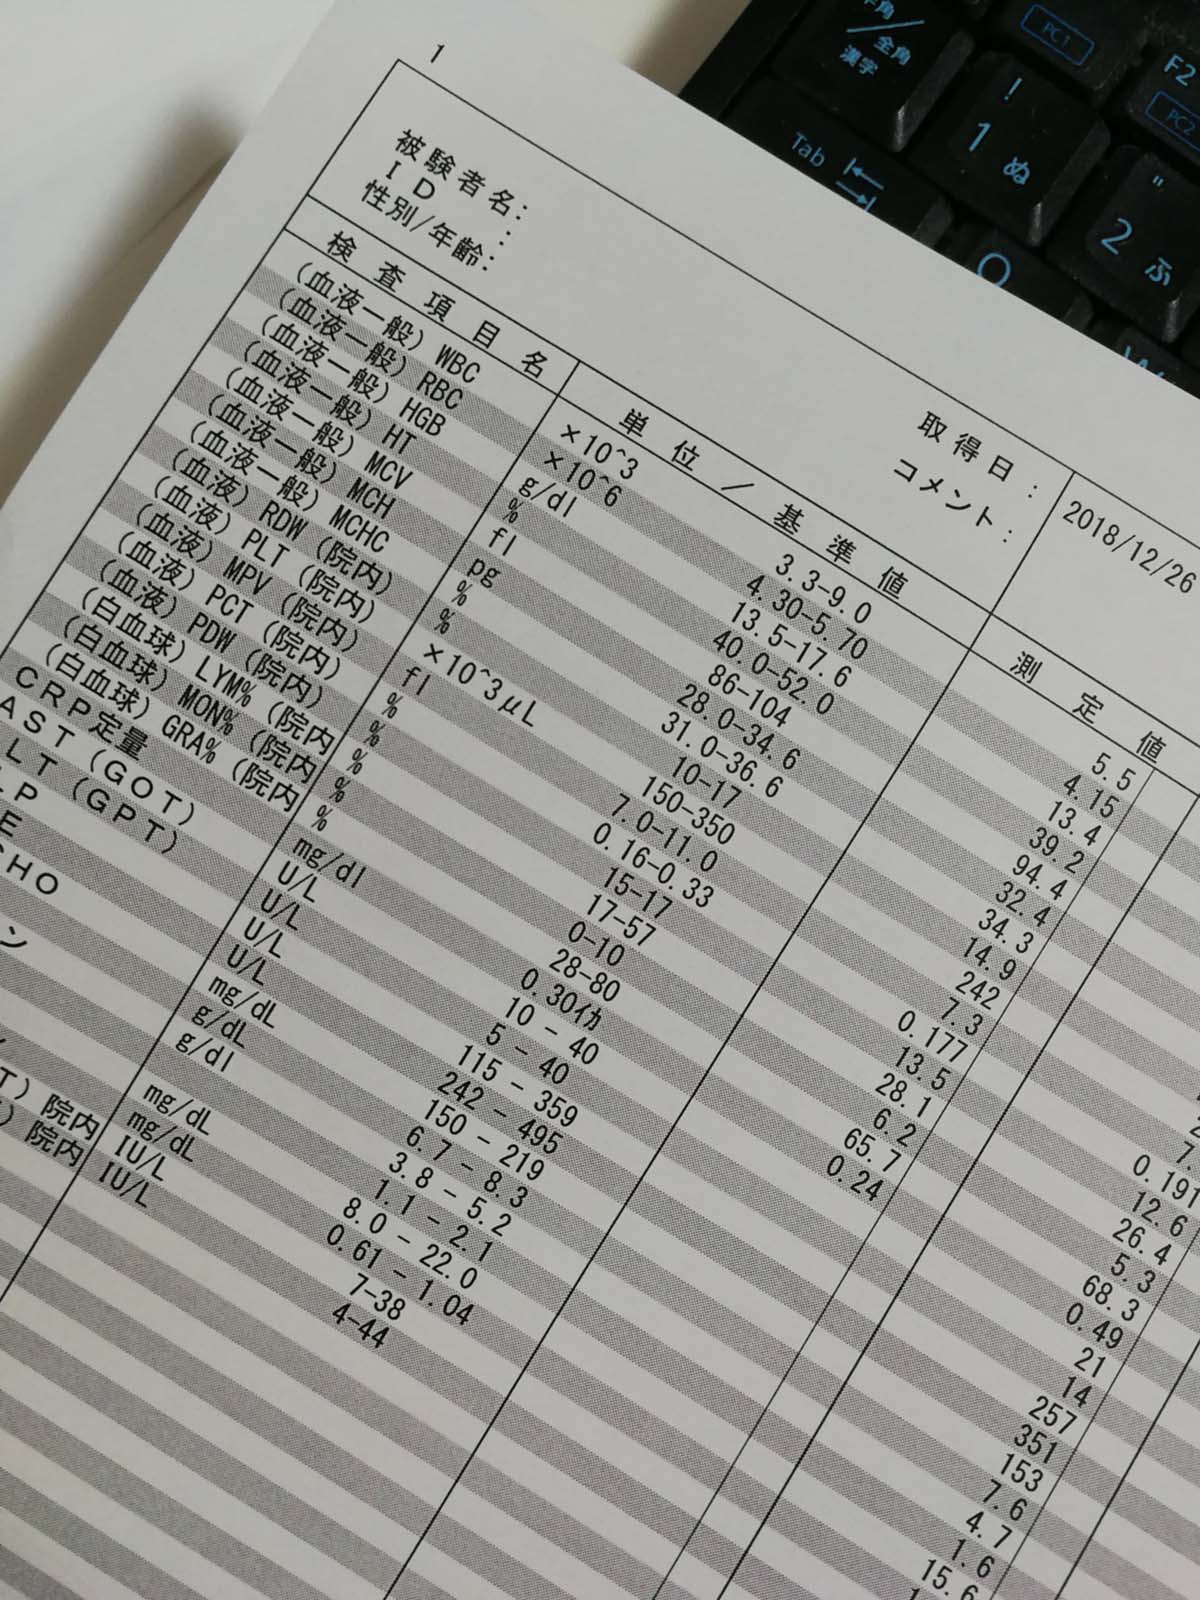 半角/全角
漢字
PC1
F2
PC2
!
1 ぬ
"
2 ふ
Tab
Q
W
1
被験者名:
ID :
性別/年齢:
取得日 : 2018/12/26
コメント :
検査項目名 単位/基準値 測定値
(血液一般) WBC ×10^3 3.3-9.0 5.5
(血液一般) RBC ×10^6 4.30-5.70 4.15
(血液一般) HGB g/dl 13.5-17.6 13.4
(血液一般) HT % 40.0-52.0 39.2
(血液一般) MCV fl 86-104 94.4
(血液一般) MCH pg 28.0-34.6 32.4
(血液一般) MCHC % 31.0-36.6 34.3
(血液) RDW (院内) % 10-17 14.9
(血液) PLT (院内) ×10^3μL 150-350 242
(血液) MPV (院内) fl 7.0-11.0 7.3
(血液) PCT (院内) % 0.16-0.33 0.177 0.191
(血液) PDW (院内) % 15-17 13.5 12.6
(白血球) LYM% (院内 % 17-57 28.1 26.4
(白血球) MON% (院内 % 0-10 6.2 5.3
(白血球) GRA% (院内 % 28-80 65.7 68.3
CRP定量 mg/dl 0.30イカ 0.24 0.49
AST (GOT) U/L 10 - 40 21
LT (GPT) U/L 5 - 40 14
LP U/L 115 - 359 257
E U/L 242 - 495 351
CHO mg/dL 150 - 219 153
g/dL 6.7 - 8.3 7.6
ン g/dl 3.8 - 5.2 4.7
1.1 - 2.1 1.6
mg/dL 8.0 - 22.0 15.6
mg/dL 0.61 - 1.04
T) 院内 IU/L 7-38
) 院内 IU/L 4-44